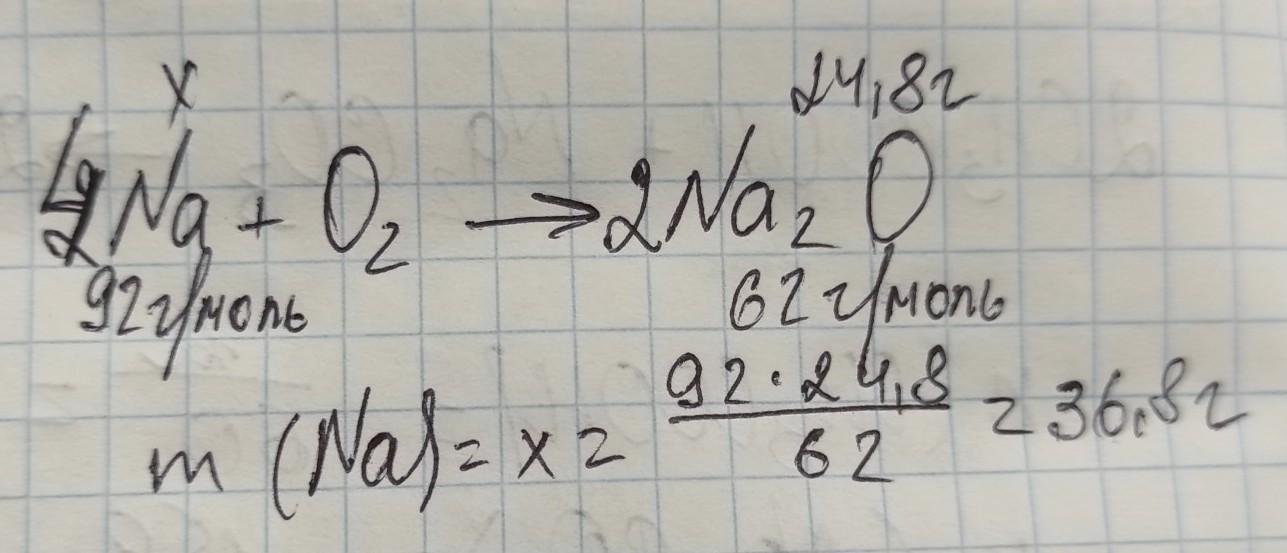 x 24,8г
4Na + O₂ → 2Na₂O
92г/моль 62г/моль
m (Na) = x = 92·24,8/62 = 36,8г